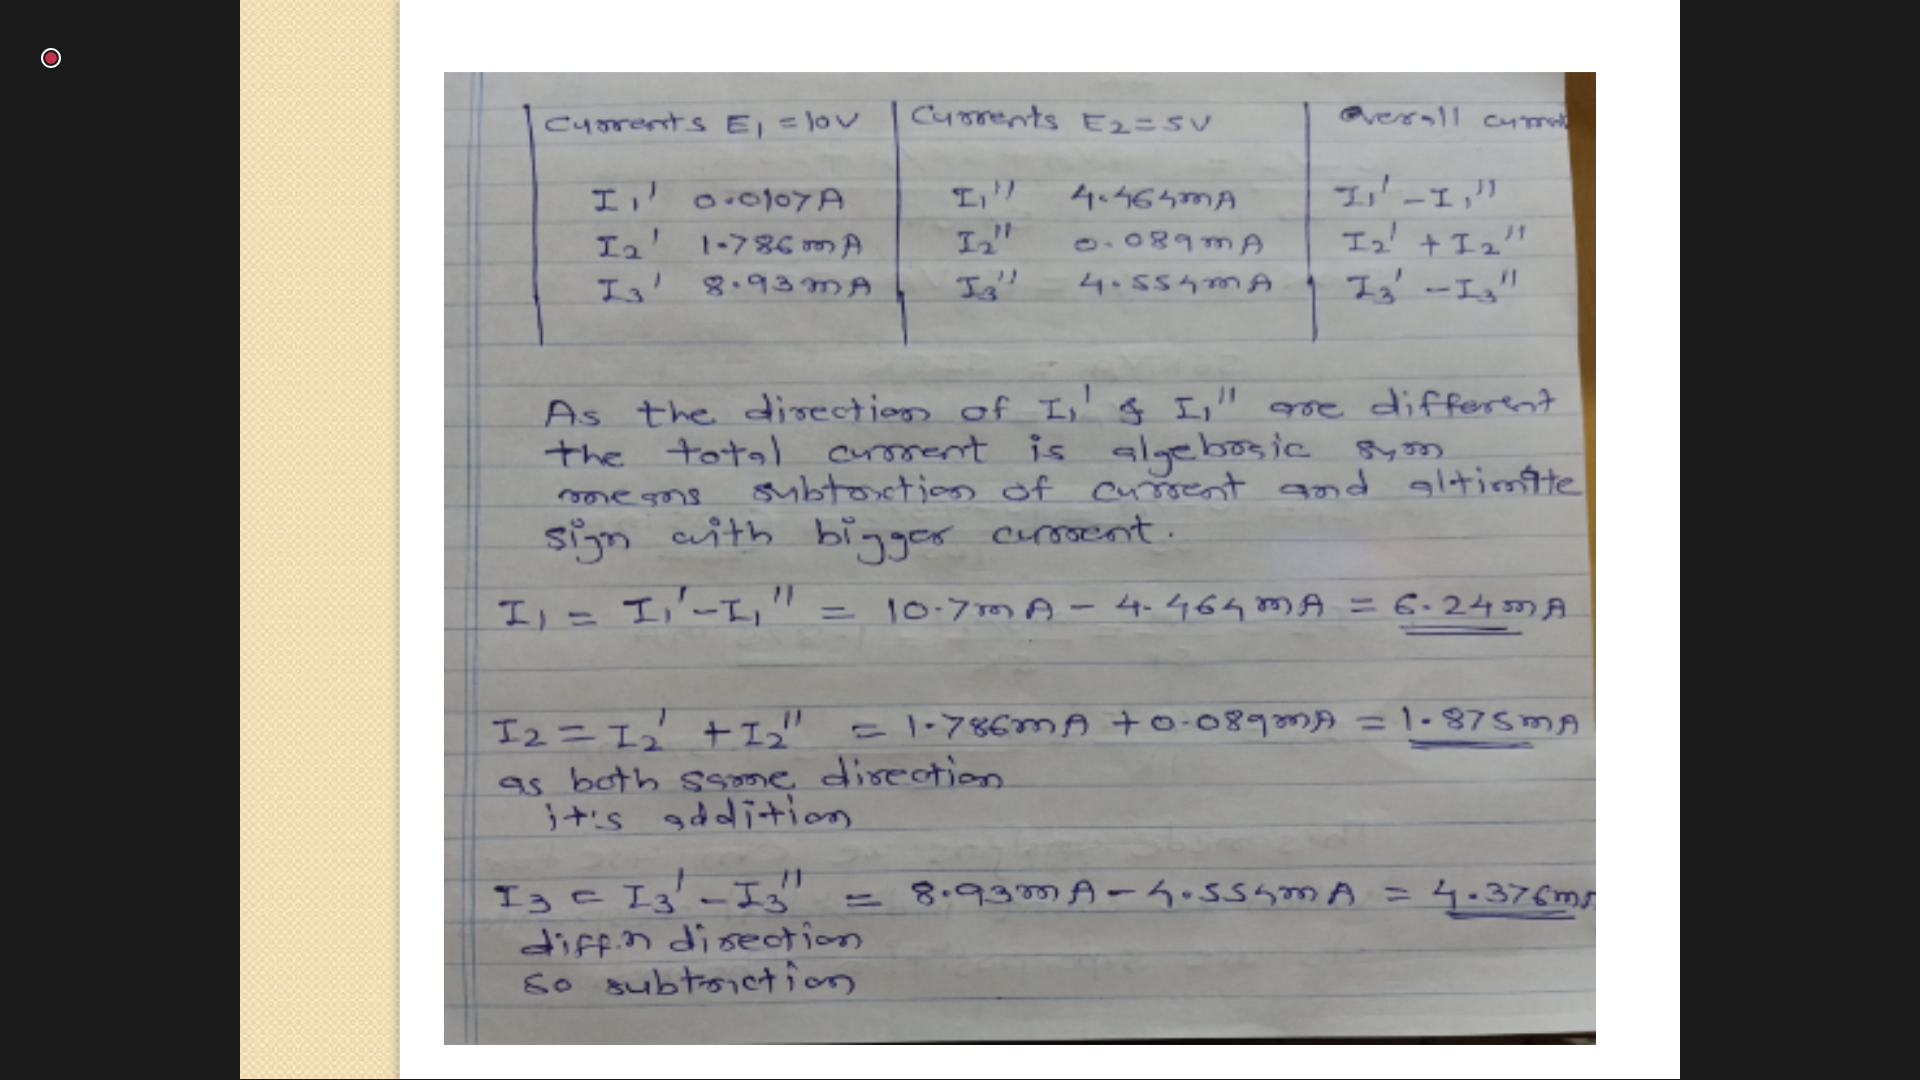 Currents E1 = 10V Currents E2 = 5V Overall current
I1' 0.0107A I1'' 4.464mA I1' - I1''
I2' 1.786mA I2'' 0.089mA I2' + I2''
I3' 8.93mA I3'' 4.554mA I3' - I3''
As the direction of I1' & I1'' are different
the total current is algebraic sum
means subtraction of current and altimate
sign with bigger current.
I1 = I1' - I1'' = 10.7mA - 4.464mA = 6.24mA
I2 = I2' + I2'' = 1.786mA + 0.089mA = 1.875mA
as both same direction
it's addition
I3 = I3' - I3'' = 8.93mA - 4.554mA = 4.376mA
diff.n direction
so subtraction